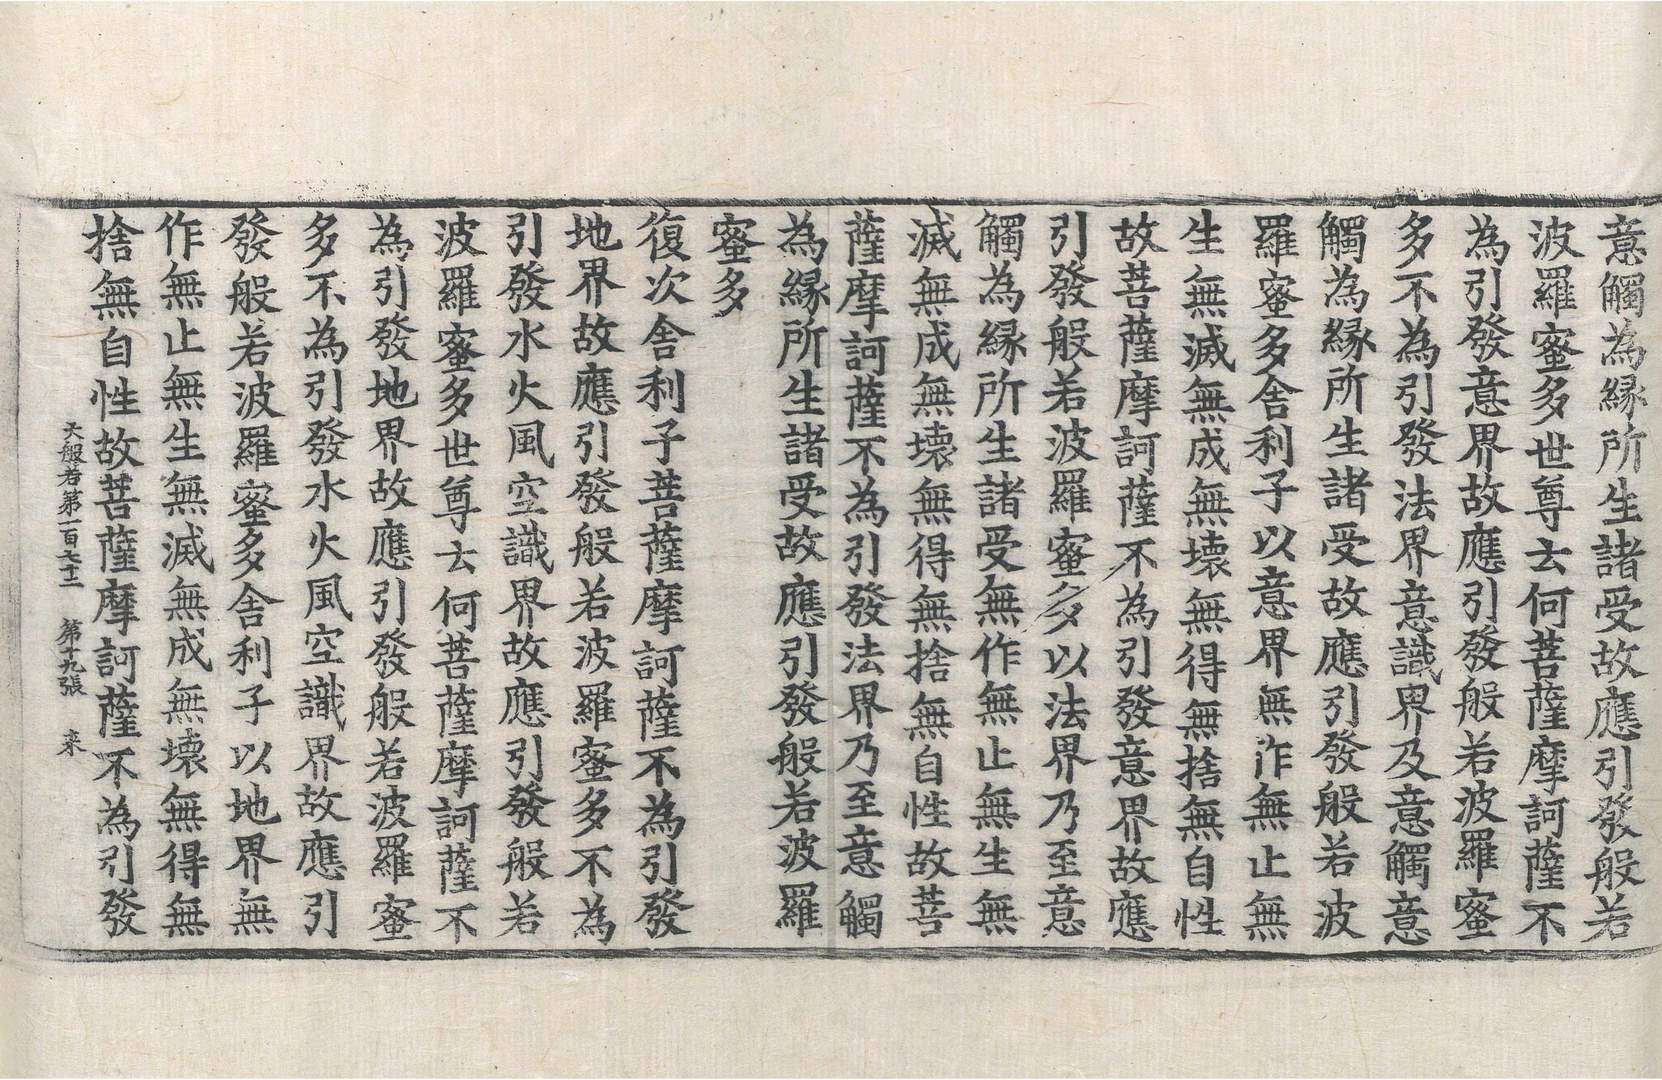 意觸為縁所生諸受故應引發般若
波羅蜜多世尊云何菩薩摩訶薩不
為引發意界故應引發般若波羅蜜
多不為引發法界意識界及意觸意
觸為縁所生諸受故應引發般若波
羅蜜多舎利子以意界無作無止無
生無滅無成無壊無得無捨無自性
故菩薩摩訶薩不為引發意界故應
引發般若波羅蜜多以法界乃至意
觸為縁所生諸受無作無止無生無
滅無成無壊無得無捨無自性故菩
薩摩訶薩不為引發法界乃至意觸
為縁所生諸受故應引發般若波羅
蜜多
復次舎利子菩薩摩訶薩不為引發
地界故應引發般若波羅蜜多不為
引發水火風空識界故應引發般若
波羅蜜多世尊云何菩薩摩訶薩不
為引發地界故應引發般若波羅蜜
多不為引發水火風空識界故應引
發般若波羅蜜多舎利子以地界無
作無止無生無滅無成無壊無得無
捨無自性故菩薩摩訶薩不為引發
般若第一百七十二 第十九張 来